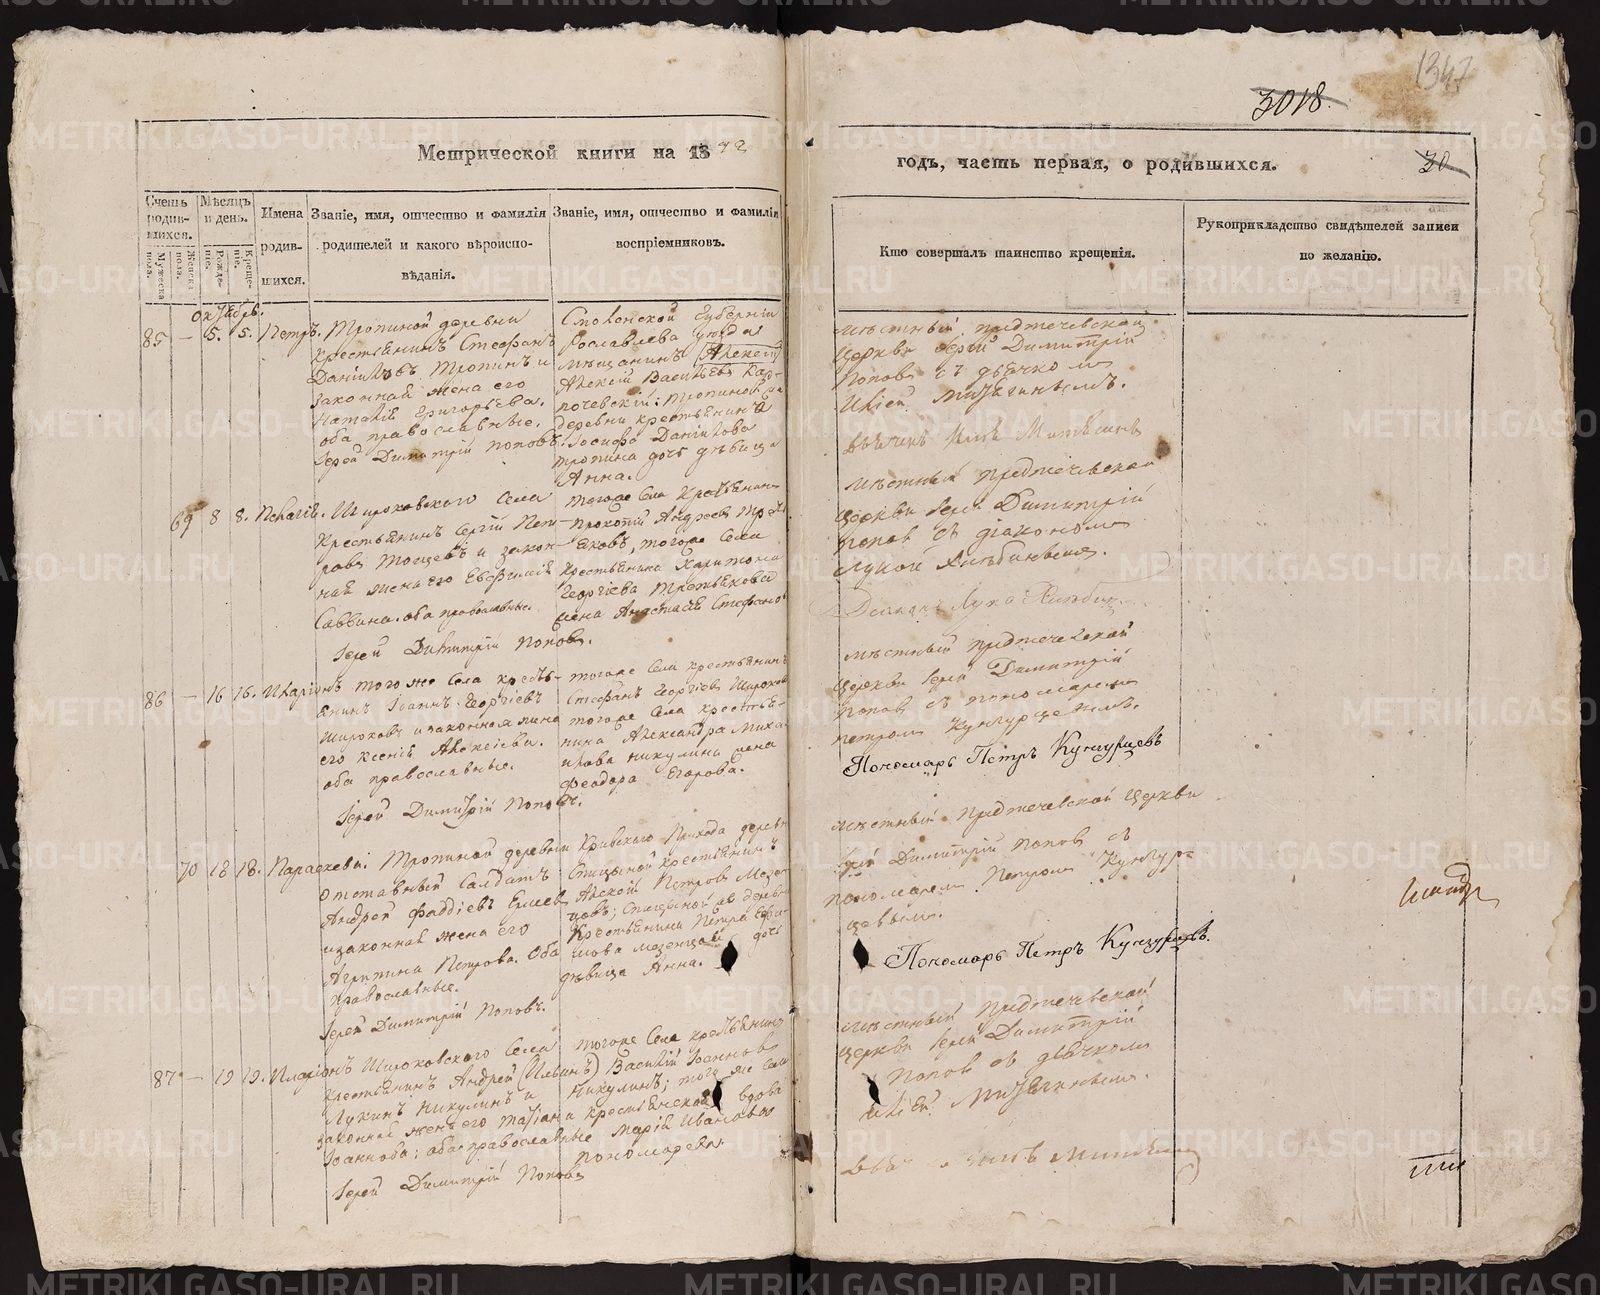 1347
3018.
30
Метрической книги на 1842
годъ, часть первая, о родившихся.
Счетъ родив-шихся.
Мужеска пола.
Женска пола.
Мѣсяцъ и день.
Рожде-нія.
Креще-нія.
Имена
родив-
шихся.
Званіе, имя, отчество и фамилія
родителей и какого вѣроиспо-
вѣданія.
Званіе, имя, отчество и фамилія
воспріемниковъ.
Кто совершалъ таинство крещенія.
Рукоприкладство свидѣтелей записи
по желанію.
Октябрь.
85 — 5. 5. Петръ.
Тропиной деревни
крестьянинъ Стефанъ
Даніиловъ Тропинъ и
законная жена его
Наталія Григорьева.
оба православные.
Іерей Димитрій Поповъ.
Смоленской Губерніи
Рославлева уѣзда
мѣщанинъ Алексій
Алексій Васильевъ
Тропиной
деревни крестьянина
Іосифа Даніилова
Тропина дочь дѣвица
Анна.
мѣстный предтечевской
Церкви Іерей Димитрій
Поповъ съ дьячкомъ
69 8 8. Пелагія.
Широковского Села
Крестьянинъ Сергій Пет-
ровъ и закон-
ная жена его Евфимія
Саввина. оба православные.
Іерей Димитрій Поповъ.
тогоже Села Крестьянинъ
Прокопій Андреевъ Треть-
яковъ, тогоже Села
Крестьянина Харитона
Георгіева Третьякова
жена Анастасія Стефанова
мѣстный предтечевской
Церкви Іерей Димитрій
Поповъ съ діакономъ
Лукой
Діаконъ Лука
86 — 16 16. Иларіонъ
того же Села кресть-
янинъ Іоаннъ Георгіевъ
Широковъ и законная жена
его Ксенія Алексіева.
оба православные.
Іерей Димитрій Поповъ.
тогоже Села крестьянинъ
Стефанъ Георгіевъ Широковъ
тогоже Села крестья-
нина Александра Миха-
илова Никулина жена
Феодора Егорова.
мѣстный предтечевской
Церкви Іерей Димитрій
Поповъ съ пономаремъ
петромъ Кунгурцевымъ.
Пономарь Петръ Кунгурцевъ
70 18 18. Параскеви.
Тропиной деревни
Отставный Салдатъ
Андрей Фаддіевъ
и законная жена его
Агрипина Петрова. Оба
православные.
Іерей Димитрій Поповъ.
Кривского Прихода деревни
Спицыной крестьянинъ
Алексій Петровъ Мезен-
цовъ; Спицыной же деревни
Крестьянина Петра
Мезенцова дочь
дѣвица Анна.
мѣстный предтечевской Церкви
Іерей Димитрій Поповъ съ
пономаремъ Петромъ Кунгур-
цевымъ.
Пономарь Петръ Кунгурцевъ.
87 — 19 19. Иларіонъ
Широковского Села
крестьянинъ Андрей (Ильинъ)
Лукинъ Никулинъ и
законная жена его Татіана
Іоаннова; оба православные
Іерей Димитрій Поповъ
тогоже Села крестьянинъ
Василій Іоанновъ
Никулинъ; того же Села
крестьянская вдова
Марія Иванова
Пономарева.
мѣстный предтечевской
Церкви Іерей Димитрій
Поповъ съ дьячкомъ
METRIKI.GASO-URAL.RU